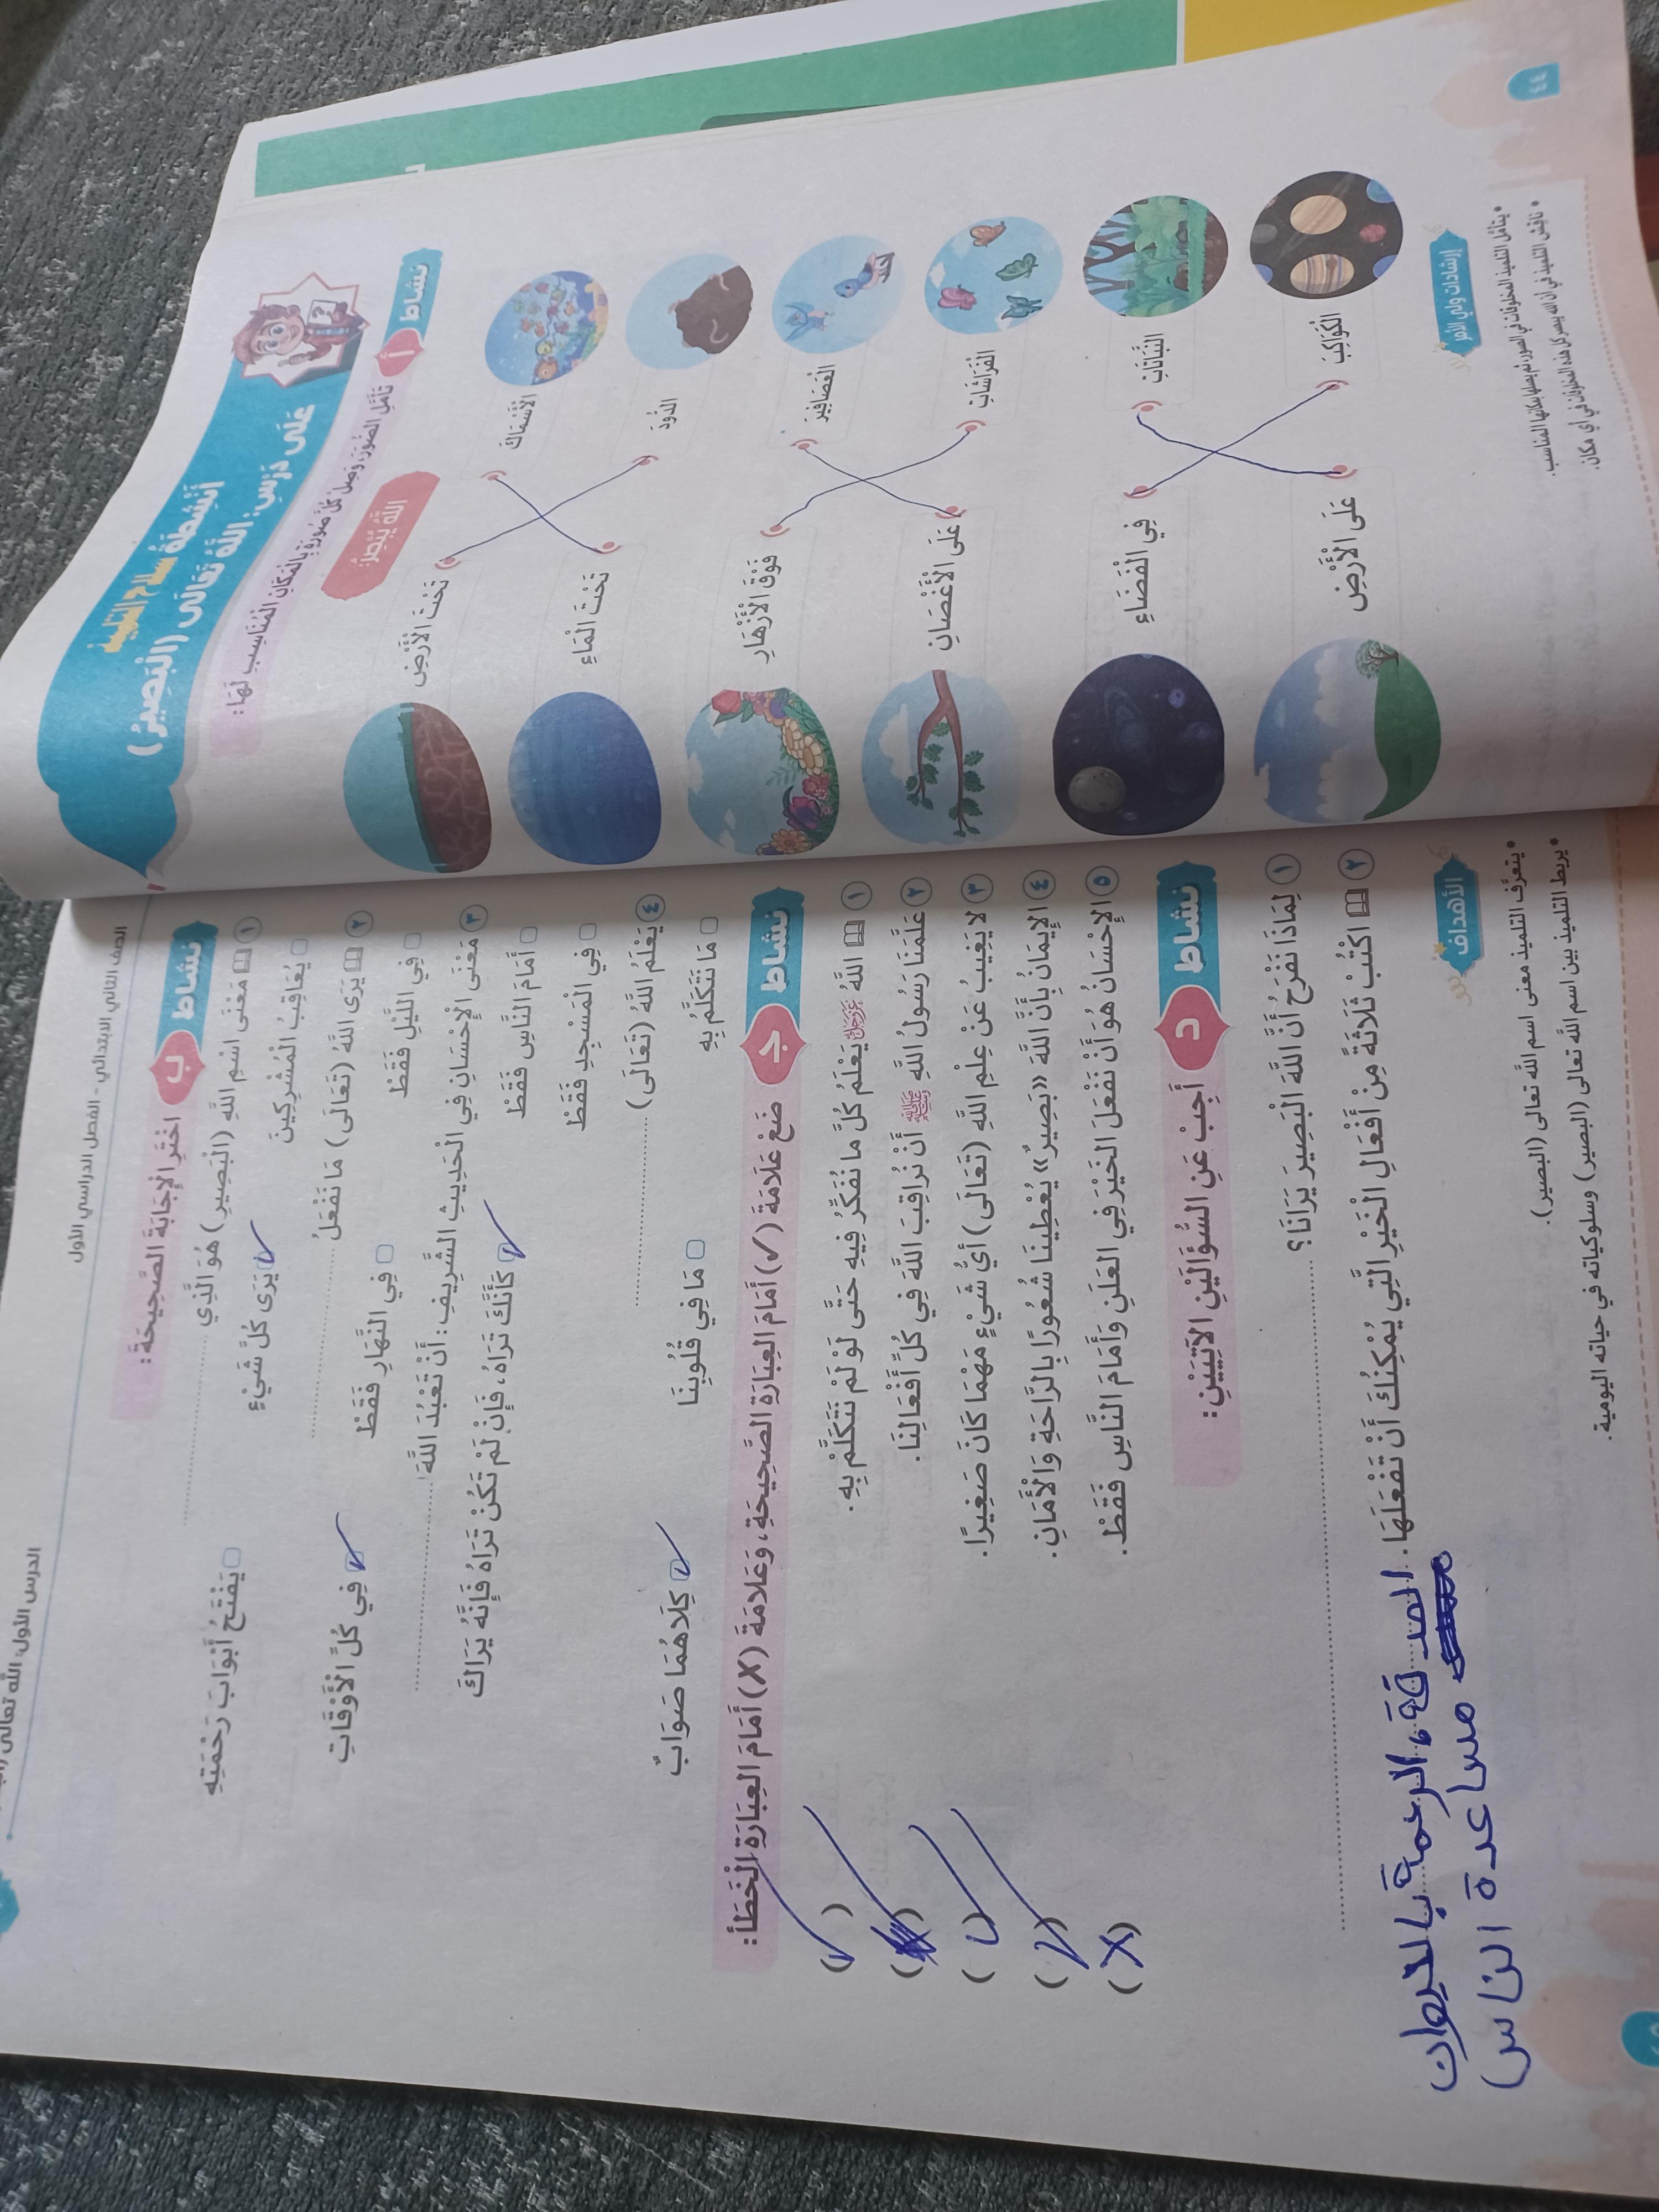 أَنْشِطَةُ سلاح التلميذ
عَلَى دَرْسِ: اللَّهُ تَعَالَى (الْبَصِيرُ)
نشاط أ
تَأَمَّلِ الصُّوَرَ، وَصِلْ كُلَّ صُورَةٍ بِالْمَكَانِ الْمُنَاسِبِ لَهَا:
اللَّهُ يُبْصِرُ:
الْأَسْمَاكَ تَحْتَ الْأَرْضِ
الدُّودَ تَحْتَ الْمَاءِ
الْعَصَافِيرَ فَوْقَ الْأَزْهَارِ
الْفَرَاشَاتِ عَلَى الْأَغْصَانِ
النَّبَاتَاتِ فِي الْفَضَاءِ
الْكَوَاكِبَ عَلَى الْأَرْضِ
إرشادات ولي الأمر
• يتأمل التلميذ المخلوقات في الصور، ثم يصلها بمكانها المناسب.
• ناقش التلميذ في أن الله يبصر كل هذه المخلوقات في أي مكان.
٤٤
الدرس الأول: الله تعالى
الصف الثاني الابتدائي - الفصل الدراسي الأول
نشاط ب اخْتَرِ الْإِجَابَةَ الصَّحِيحَةَ:
١ مَعْنَى اسْمِ اللَّهِ (الْبَصِيرِ) هُوَ الَّذِي ..........
يُعَاقِبُ الْمُشْرِكِينَ يَرَى كُلَّ شَيْءٍ ✓ يَفْتَحُ أَبْوَابَ رَحْمَتِهِ
٢ يَرَى اللَّهُ (تَعَالَى) مَا نَفْعَلُ ..........
فِي اللَّيْلِ فَقَطْ فِي النَّهَارِ فَقَطْ فِي كُلِّ الْأَوْقَاتِ ✓
٣ مَعْنَى الْإِحْسَانِ فِي الْحَدِيثِ الشَّرِيفِ: أَنْ تَعْبُدَ اللَّهَ ..........
أَمَامَ النَّاسِ فَقَطْ كَأَنَّكَ تَرَاهُ، فَإِنْ لَمْ تَكُنْ تَرَاهُ فَإِنَّهُ يَرَاكَ ✓
فِي الْمَسْجِدِ فَقَطْ
٤ يَعْلَمُ اللَّهُ (تَعَالَى) ..........
مَا نَتَكَلَّمُ بِهِ مَا فِي قُلُوبِنَا كِلَاهُمَا صَوَابٌ ✓
نشاط جـ ضَعْ عَلَامَةَ (✓) أَمَامَ الْعِبَارَةِ الصَّحِيحَةِ، وَعَلَامَةَ (X) أَمَامَ الْعِبَارَةِ الْخَطَأِ:
١ اللَّهُ عَزَّ وَجَلَّ يَعْلَمُ كُلَّ مَا نُفَكِّرُ فِيهِ حَتَّى لَوْ لَمْ نَتَكَلَّمْ بِهِ. (✓)
٢ عَلَّمَنَا رَسُولُ اللَّهِ ﷺ أَنْ نُرَاقِبَ اللَّهَ فِي كُلِّ أَفْعَالِنَا. (✓)
٣ لَا يَغِيبُ عَنْ عِلْمِ اللَّهِ (تَعَالَى) أَيُّ شَيْءٍ مَهْمَا كَانَ صَغِيرًا. (✓)
٤ الْإِيمَانُ بِأَنَّ اللَّهَ «بَصِيرٌ» يُعْطِينَا شُعُورًا بِالرَّاحَةِ وَالْأَمَانِ. (✓)
٥ الْإِحْسَانُ هُوَ أَنْ نَفْعَلَ الْخَيْرَ فِي الْعَلَنِ وَأَمَامَ النَّاسِ فَقَطْ. (X)
نشاط د أَجِبْ عَنِ السُّؤَالَيْنِ الْآتِيَيْنِ:
١ لِمَاذَا نَفْرَحُ أَنَّ اللَّهَ الْبَصِيرَ يَرَانَا؟ ..........
٢ اكْتُبْ ثَلَاثَةً مِنْ أَفْعَالِ الْخَيْرِ الَّتِي يُمْكِنُكَ أَنْ تَفْعَلَهَا. الصدقة، الرحمة بالحيوان
مساعدة الناس
الأهداف
• يتعرَّف التلميذ معنى اسم الله تعالى (البصير).
• يربط التلميذ بين اسم الله تعالى (البصير) وسلوكياته في حياته اليومية.